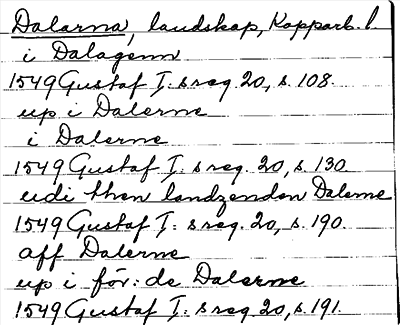 Dalarna, landskap, Kopparb. l.
i Dalagenn
1549 Gustaf I:s reg. 20, s. 108.
up i Dalerne
i Dalerne
1549 Gustaf I:s reg. 20, s. 130.
udi then landzenden Dalerne
1549 Gustaf I:s reg. 20, s. 190.
aff Dalerne
up i för:de Dalerne
1549 Gustaf I:s reg. 20, s. 191.